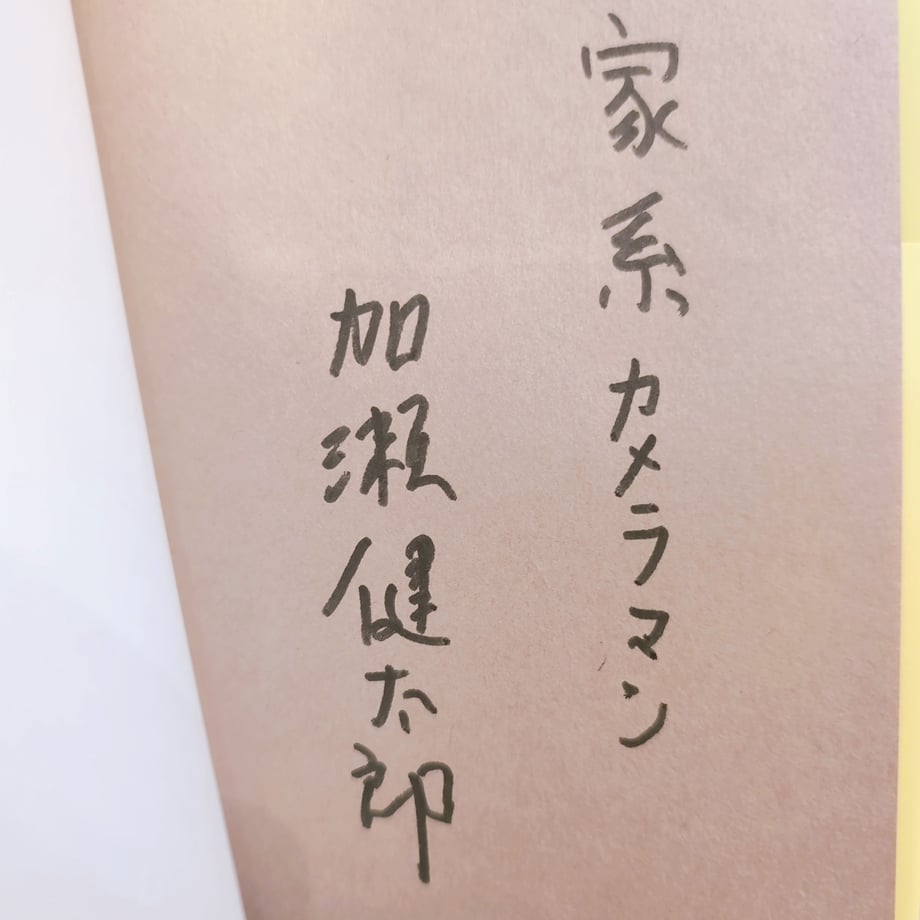 家系カメラマン
加瀬健太郎